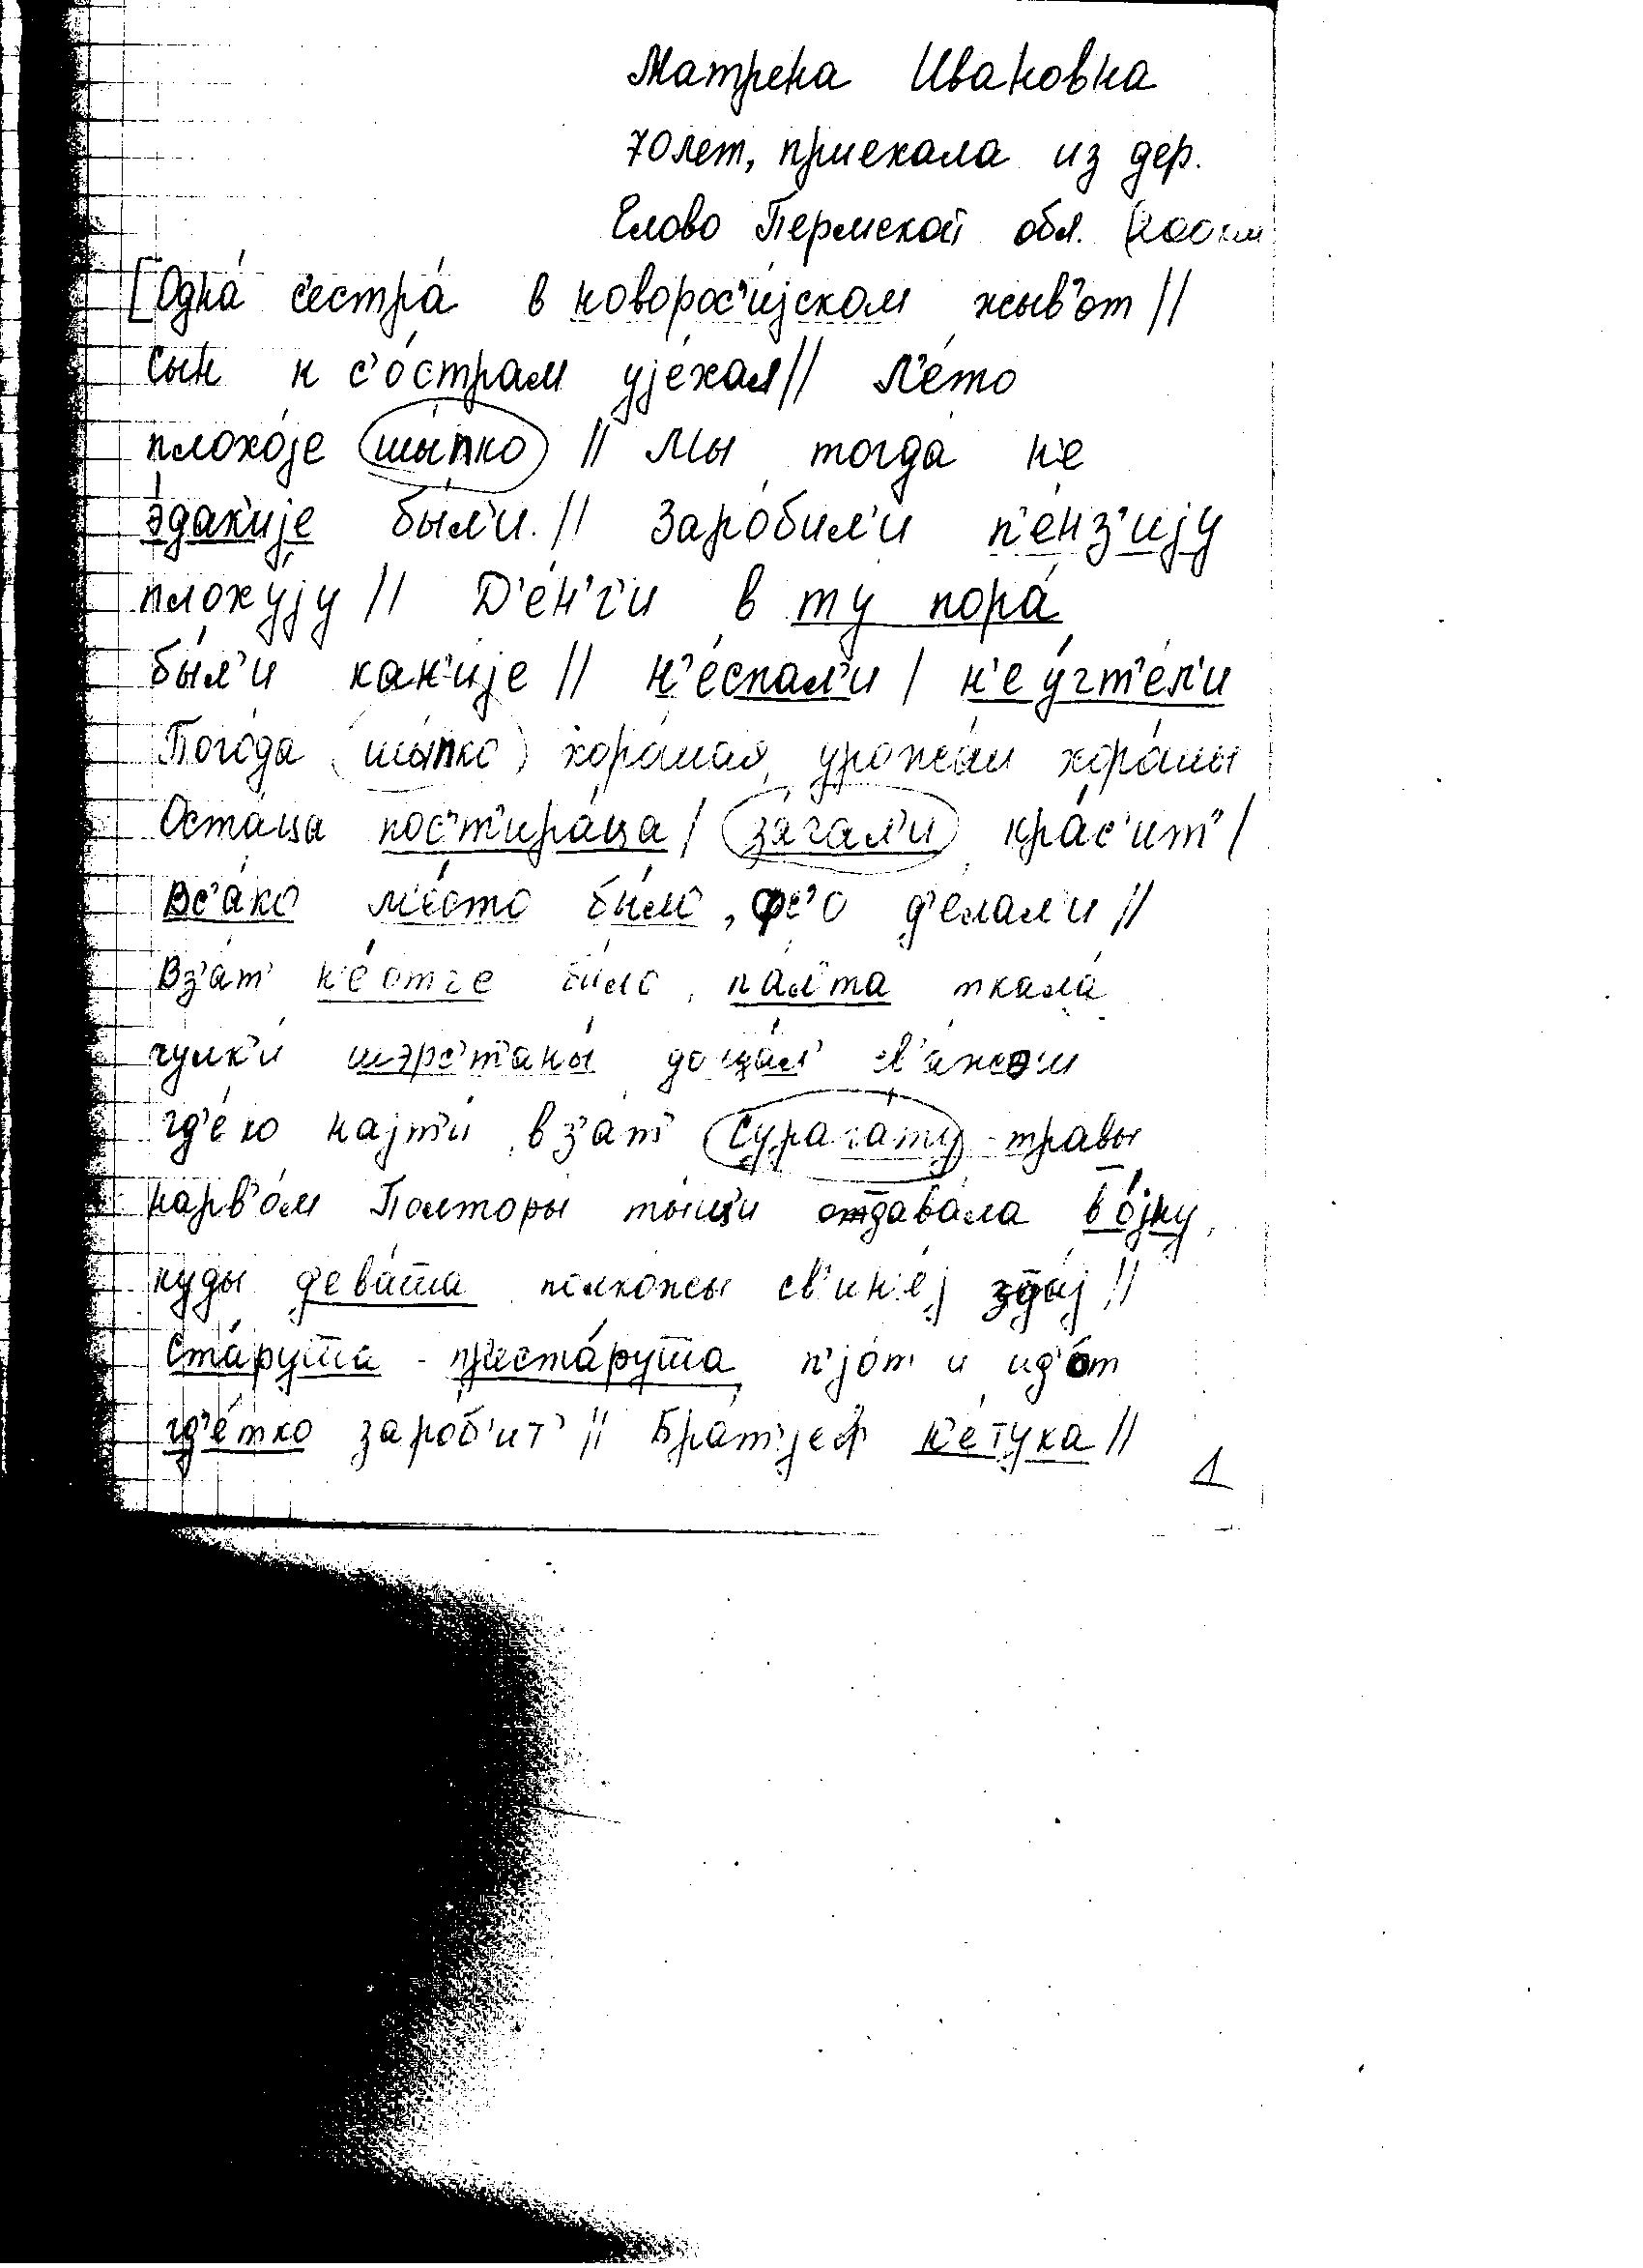 Матрена Ивановна
70 лет, приехала из дер.
Елово Пермской обл. (200 км
[Одна́ с'естра́ в новорос'и́јском жыв'о́т //
Сын к с'о́страм ује́хал // Л'е́то
плохо́је шы́пко // Мы тогда́ н'е
э́дак'ије бы́л'и. // Заро́бил'и п'е́нз'ију
плоху́ју // Д'е́н'г'и в ту пора́
бы́л'и как'ије // н'е́спал'и / н'е у́гт'ел'и
Пого́да (шы́пко) хоро́шая, урожа́и хоро́шы
Оста́ца пос'т'ира́ца / з'а́гал'и кра́с'ит' /
Вс'а́ко м'е́сто бы́ло, фс'о д'е́лал'и //
Вз'а́т' н'е́отче бы́ло, па́л'та ткала́
чулк'и́ шэрс'т'аны́ доца́м в'а́жом
гд'е́ко најт'и́ вз'а́т' сурага́ту - травы́
нарв'о́м Полторы́ ты́щи отдава́ла во́јну,
куды́ д'ева́т'са колхо́жсы св'ин'е́ј здај //
Ста́рут'а - пр'иста́рут'а п'јо́т и ид'о́т
гд'е́тко зароб'ит' // Бра́т'јеф н'е́тука //
1